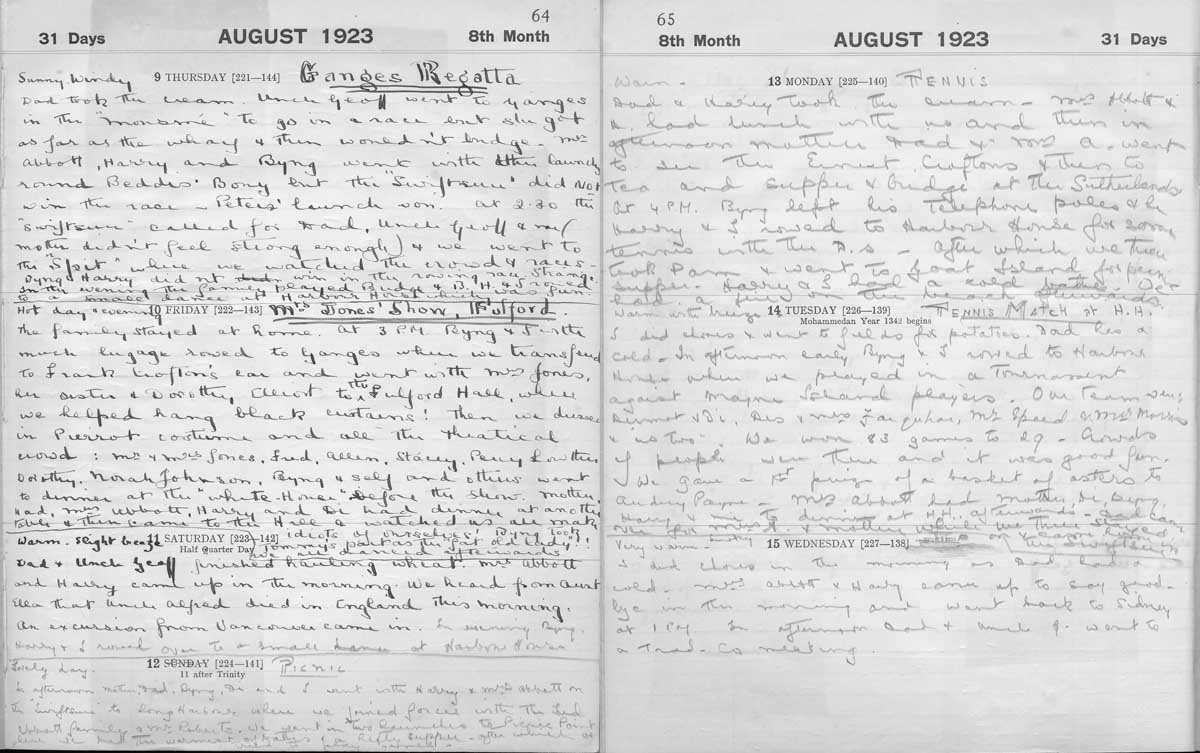 64
31 Days AUGUST 1923 8th Month
Sunny Windy 9 THURSDAY [221—144] Ganges Regatta
Dad took the cream. Uncle Geoff went to Ganges
in the "Monsme" to go in a race but she got
as far as the wharf & then wouldn't budge - Mrs
Abbott, Harry and Byng went with their launch
round Beddis' Bony but the "Swiftsure" did not
win the race - Peters' launch won. At 2.30 the
"Swiftsure" called for Dad, Uncle Geoff & me (
mother didn't feel strong enough) & we went to
the "Spit" where we watched the crowd & races -
Byng & Harry did n't win in the rowing race, strange.
In the evening the former played Bridge & B. H. & I rowed
to a small dance at Harbour House which was fun
Hot day & evening 10 FRIDAY [222—143] Mrs Jones' Show, Fulford.
The family stayed at home. At 3 PM. Byng & I with
much lugage rowed to Ganges where we transfered
to Frank Crofton's car and went with Mrs Jones,
her sister & Dorothy Elliott to the Fulford Hall, where
we helped hang black curtains! Then we dressed
in Pierrot costume and all the theatical
crowd : Mr & Mrs Jones, Fred, Allen, Stacey, Percy Lowther
Dorothy, Norah Johnson, Byng & self and others went
to dinner at the "White House" before the show. Mother,
Dad, Mrs Abbott, Harry and Di had dinner at another
table & then came to the Hall & watched us all make
idiots of ourselves! Byng took
Warm. Slight breeze 11 SATURDAY [223—142]
Half Quarter Day
We all danced afterwards
Dad & Uncle Geoff finished hauling wheat. Mrs Abbott
and Harry came up in the morning. We heard from Aunt
Ella that Uncle Alfred died in England this morning.
An excursion from Vancouver came in. In evening Byng,
Harry & I rowed over to a small dance at Harbour House
12 SUNDAY [224—141] Picnic
11 after Trinity
Lovely day.
In afternoon Mother, Dad, Byng, Di and I went with Harry & Mrs Abbott on
the "Swiftsure" to Long Harbour where we joined forces with the
Abbott family & Mrs Roberts. We went in two launches to Picnic Point
65
8th Month AUGUST 1923 31 Days
Warm - 13 MONDAY [225—140] TENNIS
Dad & Harry took the cream - Mrs Abbott &
H. had lunch with us and then in
afternoon mother Dad & Mrs A. went
to see the Ernest Croftons & then to
tea and supper & bridge at the Sutherlands
At 4 P.M. Byng left his telephone poles & he
Harry & I rowed to Harbour House for some
tennis with the D.s - After which we then
took Pam & went to Goat Island for picnic
supper. Harry & I had a cold bathe. We
Warm with breeze 14 TUESDAY [226—139] TENNIS MATCH at H.H.
Mohammedan Year 1342 begins
I did chores & went to fields for potatoes. Dad has a
cold - In afternoon early Byng & I rowed to Harbour
House where we played in a Tournament
against Mayne Island players. Our Team were:
Dermot & Di, Des & Mrs Farquhar, Mr Speed & Mrs Morris
& us two. We won 83 games to 29 - Crowds
of people were there and it was good fun.
We gave a 1st prize of a basket of asters to
Audrey Payne - Mrs Abbott had Mother, Di, Byng,
Harry & me to dinner at H.H. afterwards -
15 WEDNESDAY [227—138]
Very warm -
I did chores in the morning as Dad had a
cold. Mrs Abbott & Harry came up to say good-
bye in the morning and went back to Sidney
at 1 PM In afternoon Dad & Uncle G. went to
a Trad. Co meeting.